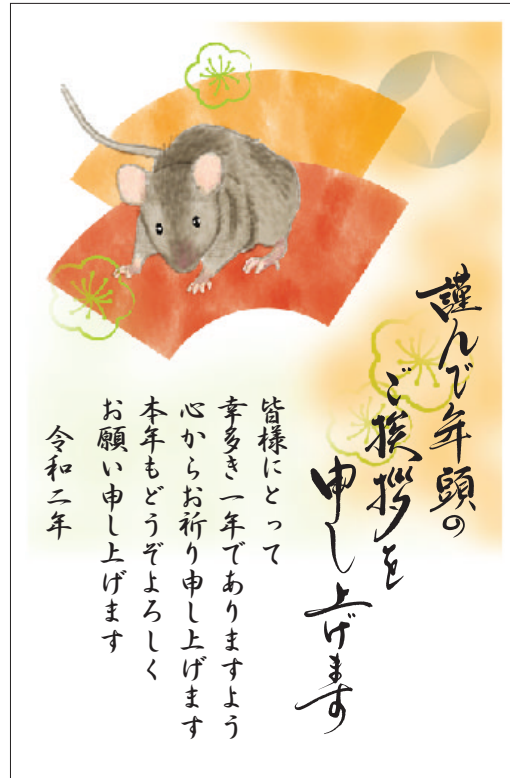 謹んで年頭の
ご挨拶を
申し上げます
皆様にとって
幸多き一年でありますよう
心からお祈り申し上げます
本年もどうぞよろしく
お願い申し上げます
令和二年